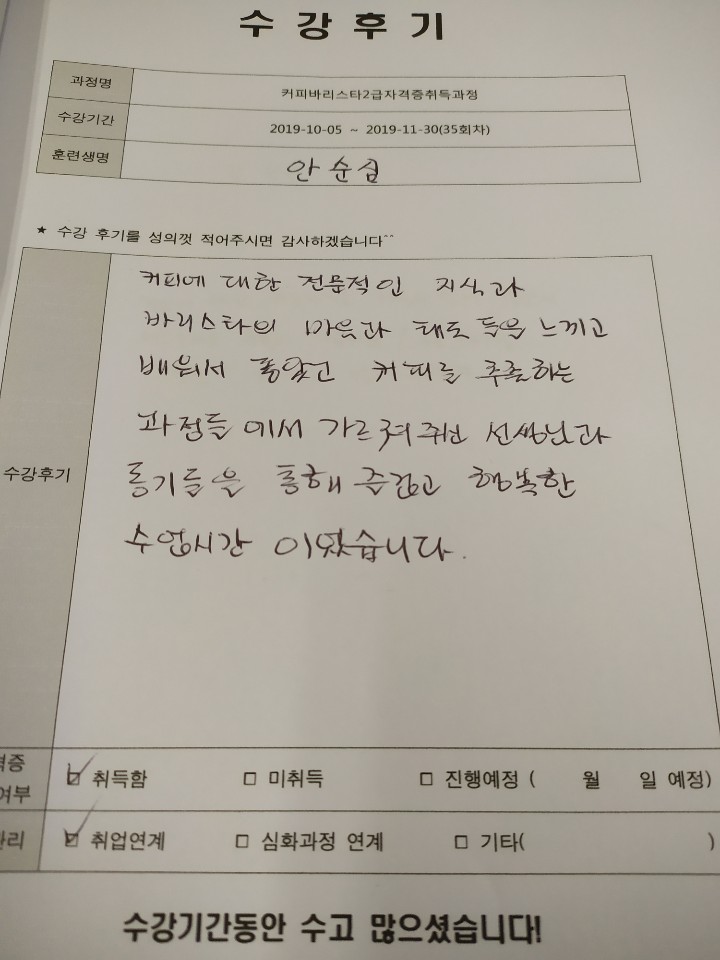 수강후기
과정명 커피바리스타2급자격증취득과정
수강기간 2019-10-05 ~ 2019-11-30(35회차)
훈련생명 안순심
★ 수강 후기를 성의껏 적어주시면 감사하겠습니다^^
수강후기
커피에 대한 전문적인 지식과
바리스타의 마음과 태도 등을 느끼고
배워서 좋았고 커피를 추출하는
과정들에서 가르쳐주신 선생님과
동기들을 통해 즐겁고 행복한
수업시간 이었습니다.
격증
여부
☑ 취득함 □ 미취득 □ 진행예정 ( 월 일 예정)
관리 ☑ 취업연계 □ 심화과정 연계 □ 기타( )
수강기간동안 수고 많으셨습니다!